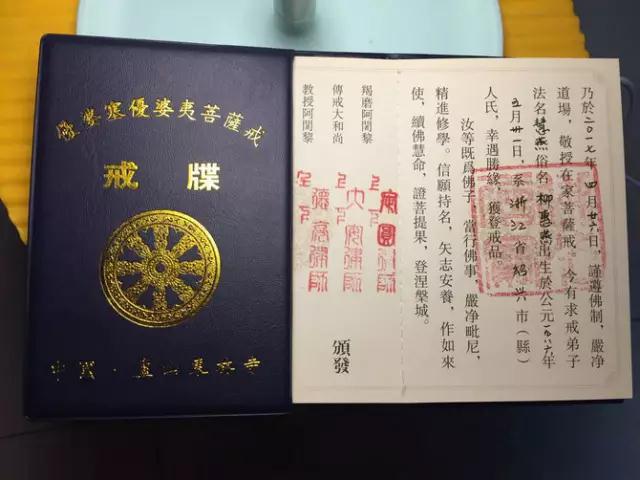 優婆塞優婆夷菩薩戒
戒牒
中國·廬山東林寺
乃於二〇一七年四月廿六日，謹遵佛制，嚴净
道場，敬授在家菩薩戒。今有求戒弟子
法名慧燕俗名柳惠燕出生於公元一九八六年
五月廿一日，系浙江省紹兴市（縣）
人氏，幸遇勝緣，獲登戒品。
汝等既爲佛子，當行佛事，嚴净毗尼，
精進修學。信願持名，矢志安養，作如來
使，續佛慧命，證菩提果，登涅槃城。
羯磨阿闍黎
上下
傳戒大和尚
上大下安律師
教授阿闍黎
頒發